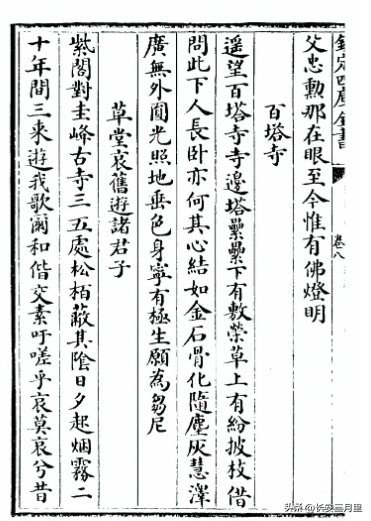 欽定四庫全書
卷八
父忠勳那在眼至今惟有佛燈明
百塔寺
遥望百塔寺寺邊塔纍纍下有敷榮草上有紛披枝借
問此下人長卧亦何其心結如金石骨化隨塵灰慧澤
廣無外圓光照地垂色身寧有極生願為芻尼
草堂哀舊遊諸君子
紫閣對圭峰古寺三五處松栢蔽其隂日夕起烟霧二
十年間三來遊我歌爾和偕交素吁嗟乎哀莫哀兮昔
头条 @长安三月里